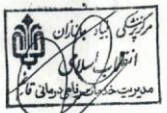 مرکز پزشکی بنیاد جانبازان
انقلاب اسلامی
مدیریت خدمات درمانی